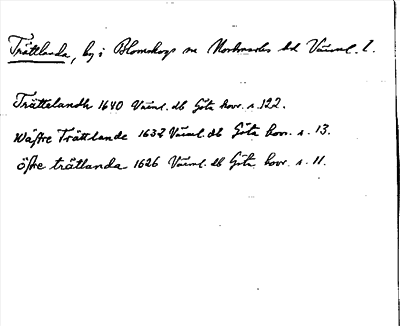 Trättlanda, by i Blomskogs sn Nordmarks hd Värml. l.
Trättelandh 1640 Värml. db Göta hovr. s. 122.
Wästre Trättlande 1637 Värml. db Göta hovr. s. 13.
öftre trätlanda 1626 Värml. db Göta hovr. s. 11.